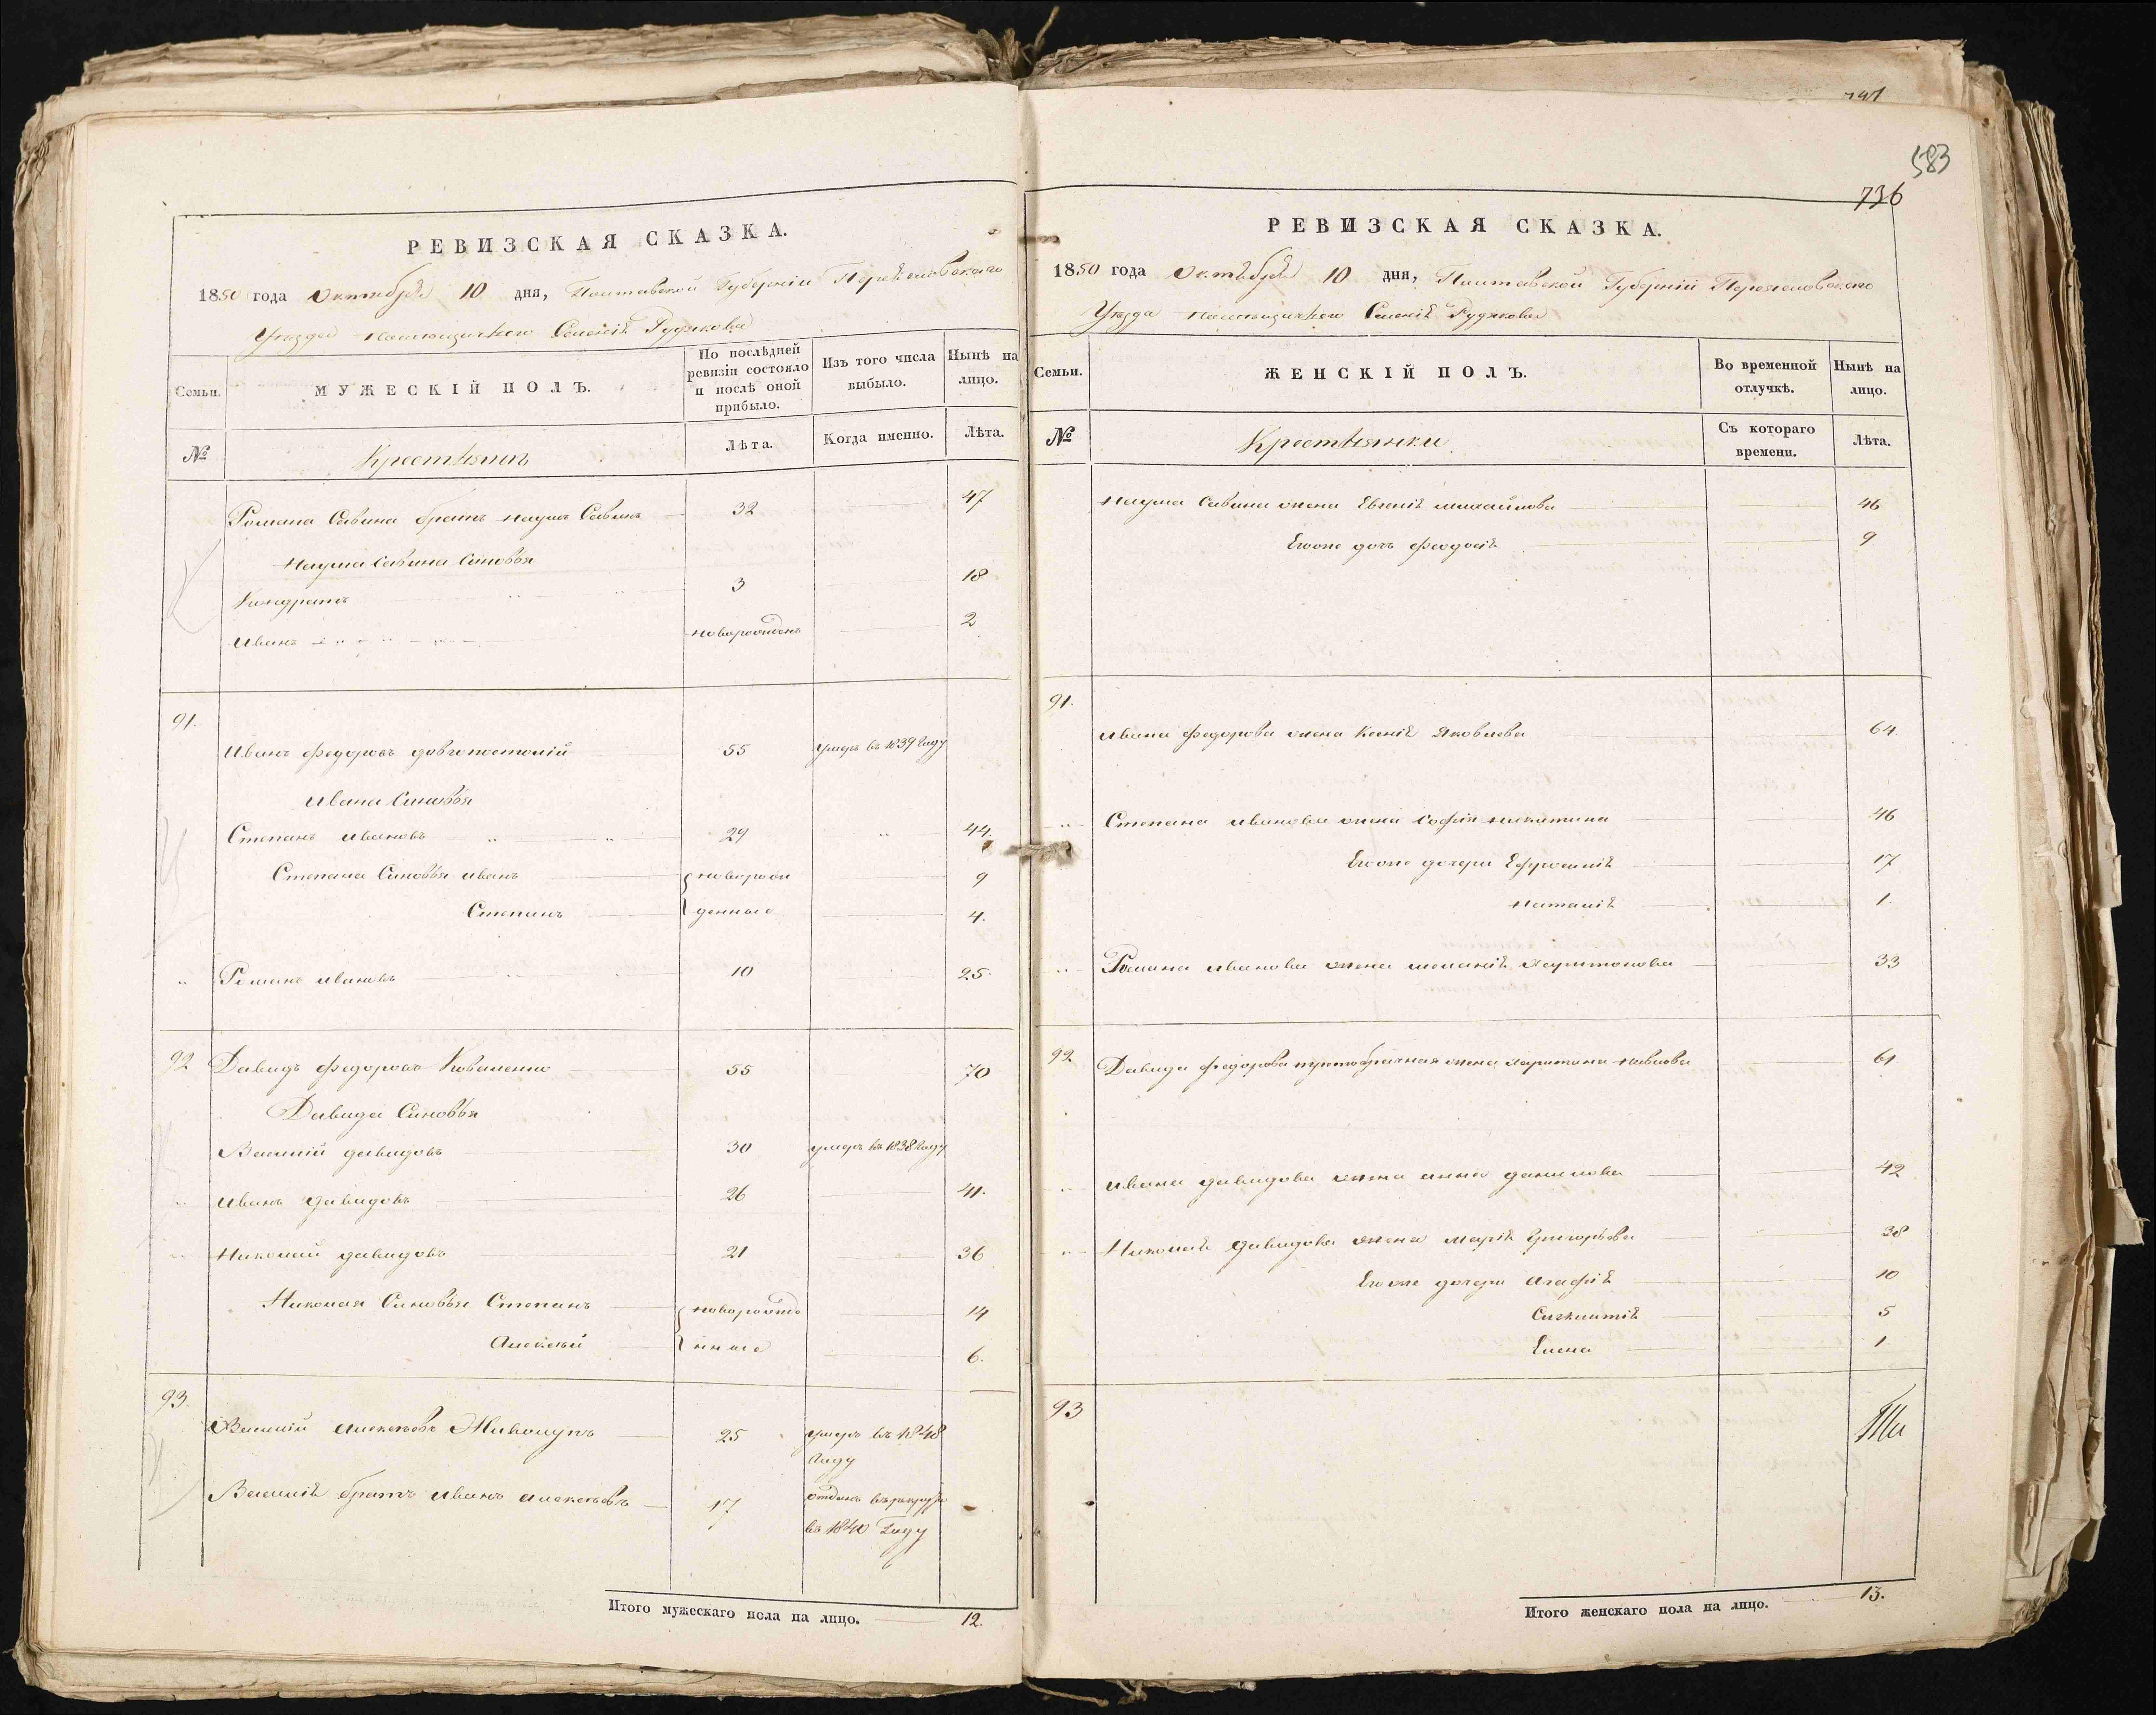 741
583
736
РЕВИЗСКАЯ СКАЗКА.
1850 года Октября 10 дня, Полтавской Губерніи Переяславскаго
Уезда помещичьего Селенія Рудякова
Семьи.
МУЖЕСКІЙ ПОЛЪ.
По послѣдней ревизіи состояло и послѣ оной прибыло.
Изъ того числа выбыло.
Нынѣ на лицо.
№
Крестьянъ
Лѣта.
Когда именно.
Лѣта.
Романа Савина братъ Наумъ Савинъ 32 47
Наума Савина Синовья
Кондратъ 3 18
Иванъ новорожденъ 2
91.
Иванъ Федоровъ Довгопостолій 55 умеръ въ 1839 Году
Ивана Синовья
Степанъ Ивановъ 29 44.
Степана Синовья Иванъ новорож 9
Степанъ денные 4.
" Романъ Ивановъ 10 25.
92 Давидъ Федоровъ Коваленко 55 70
Давида Синовья
Василій Давидовъ 30 умеръ въ 1838 Году
" Иванъ Давидовъ 26 41.
" Николай Давидовъ 21 36
Николая Синовья Степанъ новорожде 14
Алексѣй нные 6.
93.
Василій Алексѣевъ 25 умеръ въ 1848
Году
Василія братъ Иванъ Алексѣевъ 17 отданъ въ рекруты
въ 1840 Году
Итого мужескаго пола на лицо. 12.
РЕВИЗСКАЯ СКАЗКА.
1850 года Октября 10 дня, Полтавской Губерніи Переяславскаго
Уезда помещичьего Селенія Рудякова
Семьи.
ЖЕНСКІЙ ПОЛЪ.
Во временной отлучкѣ.
Нынѣ на лицо.
№
Крестьянки
Съ котораго времени.
Лѣта.
Наума Савина жена Евгенія Михайлова 46
Егоже дочь Феодосія 9
91.
Ивана Федорова жена Ксенія Яковлева 64
" Степана Иванова жена Софія Никитина 46
Егоже дочери Ефросинія 17
Наталія 1.
" Романа Иванова жена Меланія Харитонова 33
92. Давида Федорова третобрачная жена Харитина Павлова 61
" Ивана Давидова жена Анна Данилова 42
" Николая Давидова жена Марія Григорьева 38
Егоже дочери Агафія 10
5
Елена 1
93
Итого женскаго пола на лицо. 13.